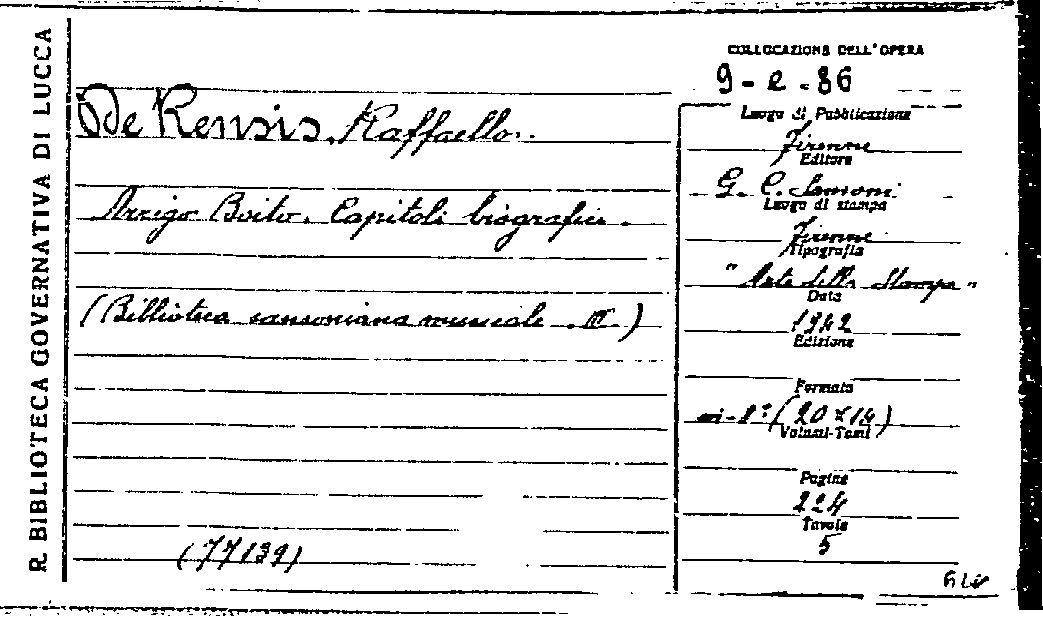 R. BIBLIOTECA GOVERNATIVA DI LUCCA
De Rensis, Raffaello.
Arrigo Boito. Capitoli biografici.
(Biblioteca sansoniana musicale III)
(77139)
COLLOCAZIONE DELL'OPERA
9-e-86
Luogo di Pubblicazione
Firenze
Editore
G. C. Sansoni
Luogo di stampa
Firenze
Tipografia
"Arte della Stampa"
Data
1942
Edizione
Formato
in-8° (20x14)
Volumi-Tomi
Pagine
224
Tavole
5